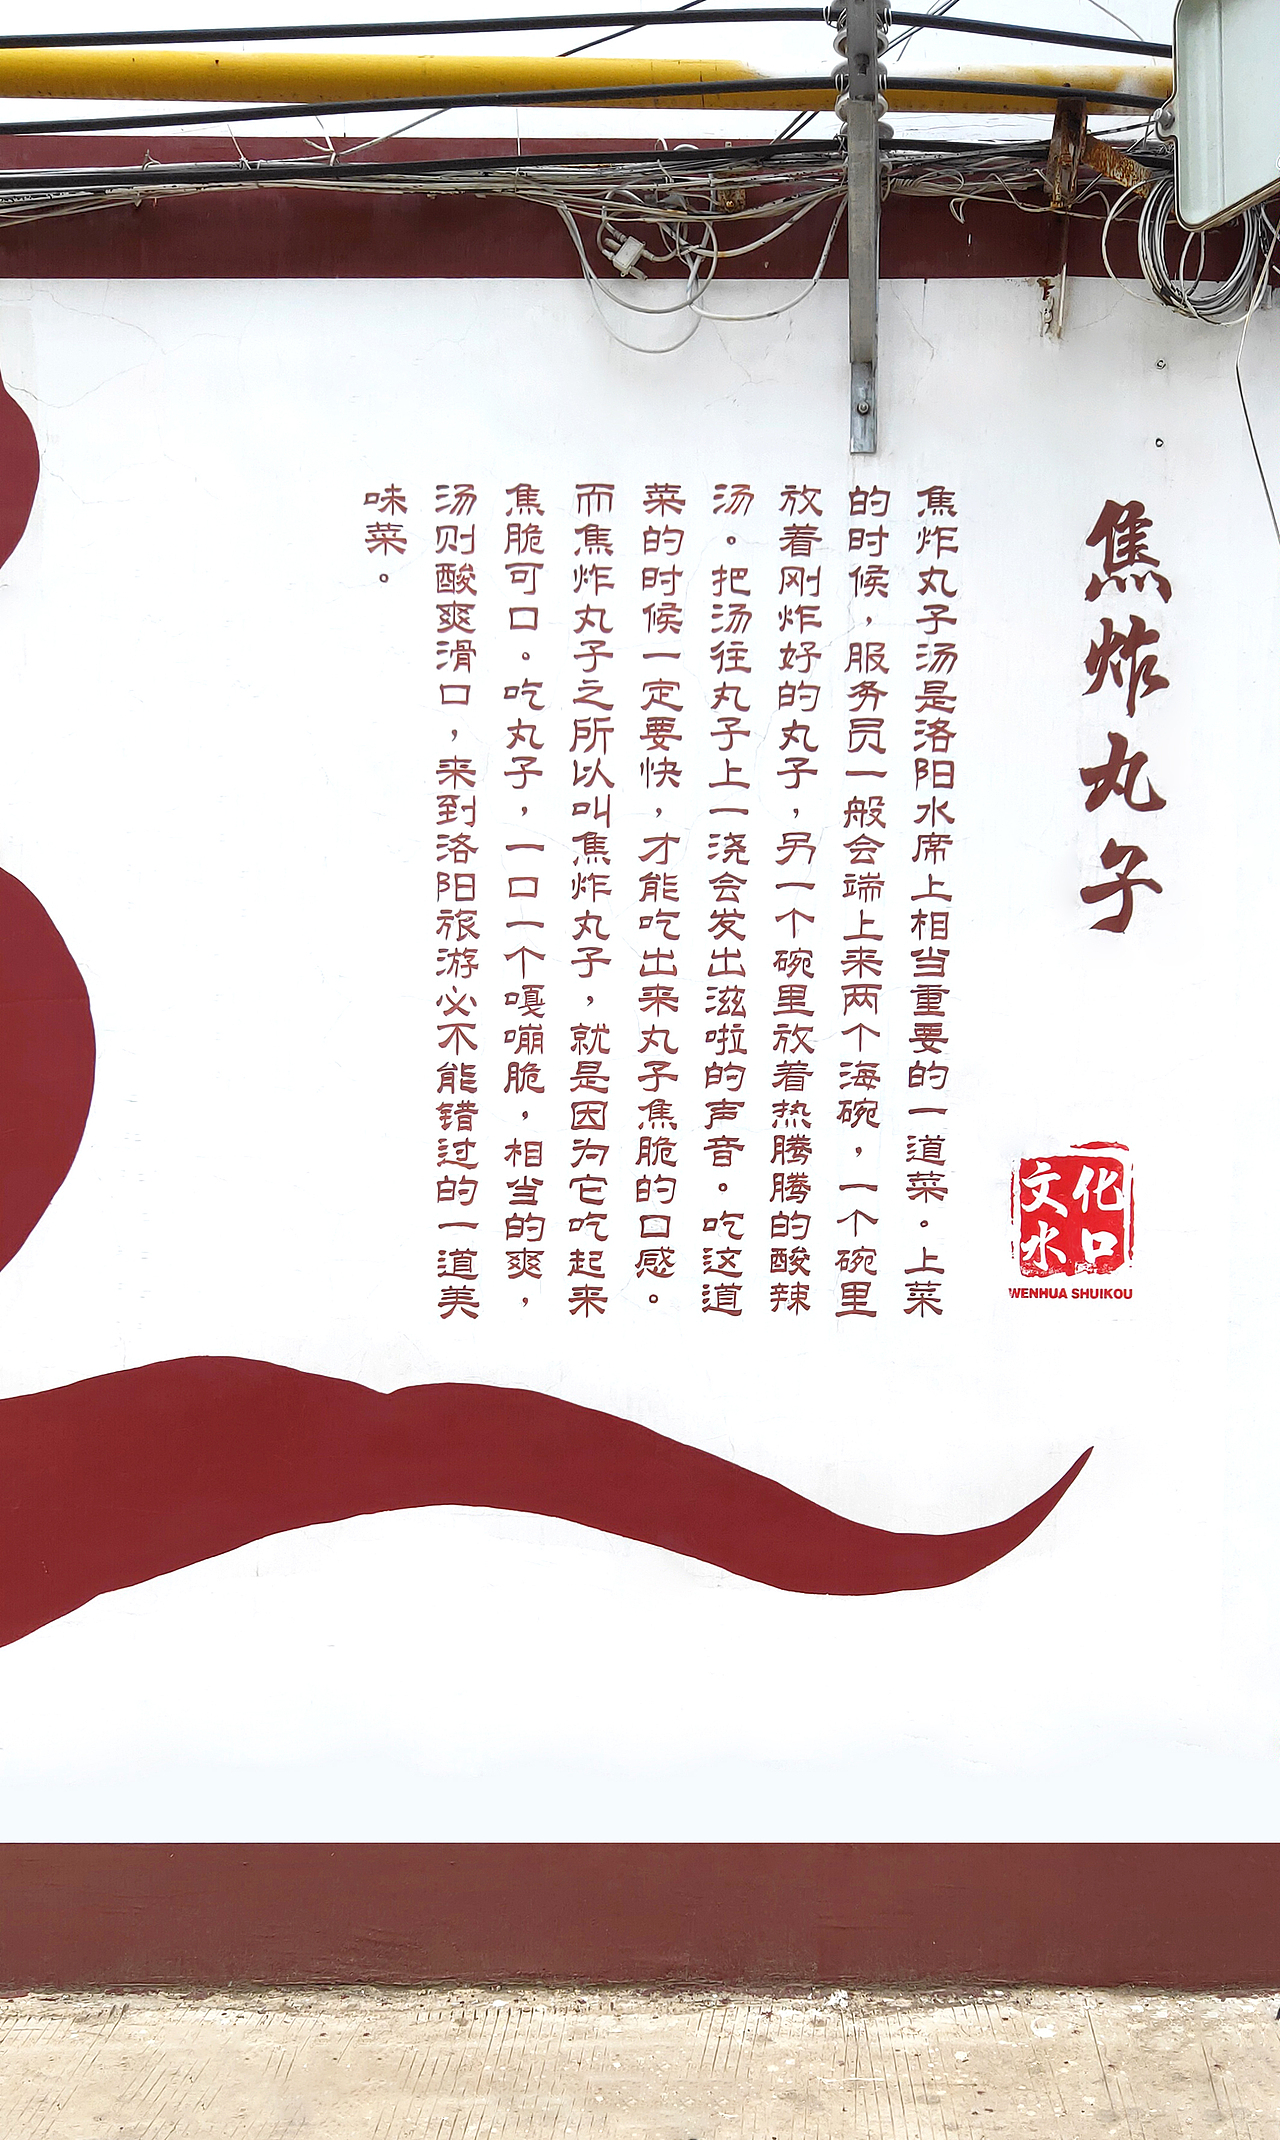 焦炸丸子
焦炸丸子汤是洛阳水席上相当重要的一道菜。上菜
的时候，服务员一般会端上来两个海碗，一个碗里
放着刚炸好的丸子，另一个碗里放着热腾腾的酸辣
汤。把汤往丸子上一浇会发出滋啦的声音。吃这道
菜的时候一定要快，才能吃出来丸子焦脆的口感。
而焦炸丸子之所以叫焦炸丸子，就是因为它吃起来
焦脆可口。吃丸子，一口一个嘎嘣脆，相当的爽，
汤则酸爽滑口，来到洛阳旅游必不能错过的一道美
味菜。
文化
水口
WENHUA SHUIKOU